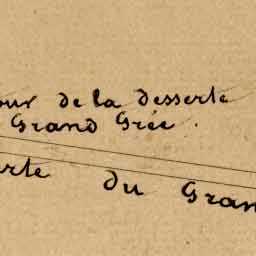 our de la desserte
Grand Grée.
rte du Gran